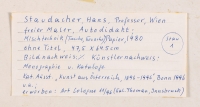 Staudacher, Hans, Professor, Wien
freier Maler, Autodidakt;
Mischtechnik (Tusche, Gouache) Papier, 1980
ohne Titel, 47,5 x 64,5 cm
Bildnachweis: Künstlernachweis:
Monographie u. Kataloge.
Kat. Ausst. Kunst aus Österreich, 1896-1996, Bonn 1996
u.a.
erworben: Art Cologne (Gal. Thoman, Innsbruck)
Stau
1